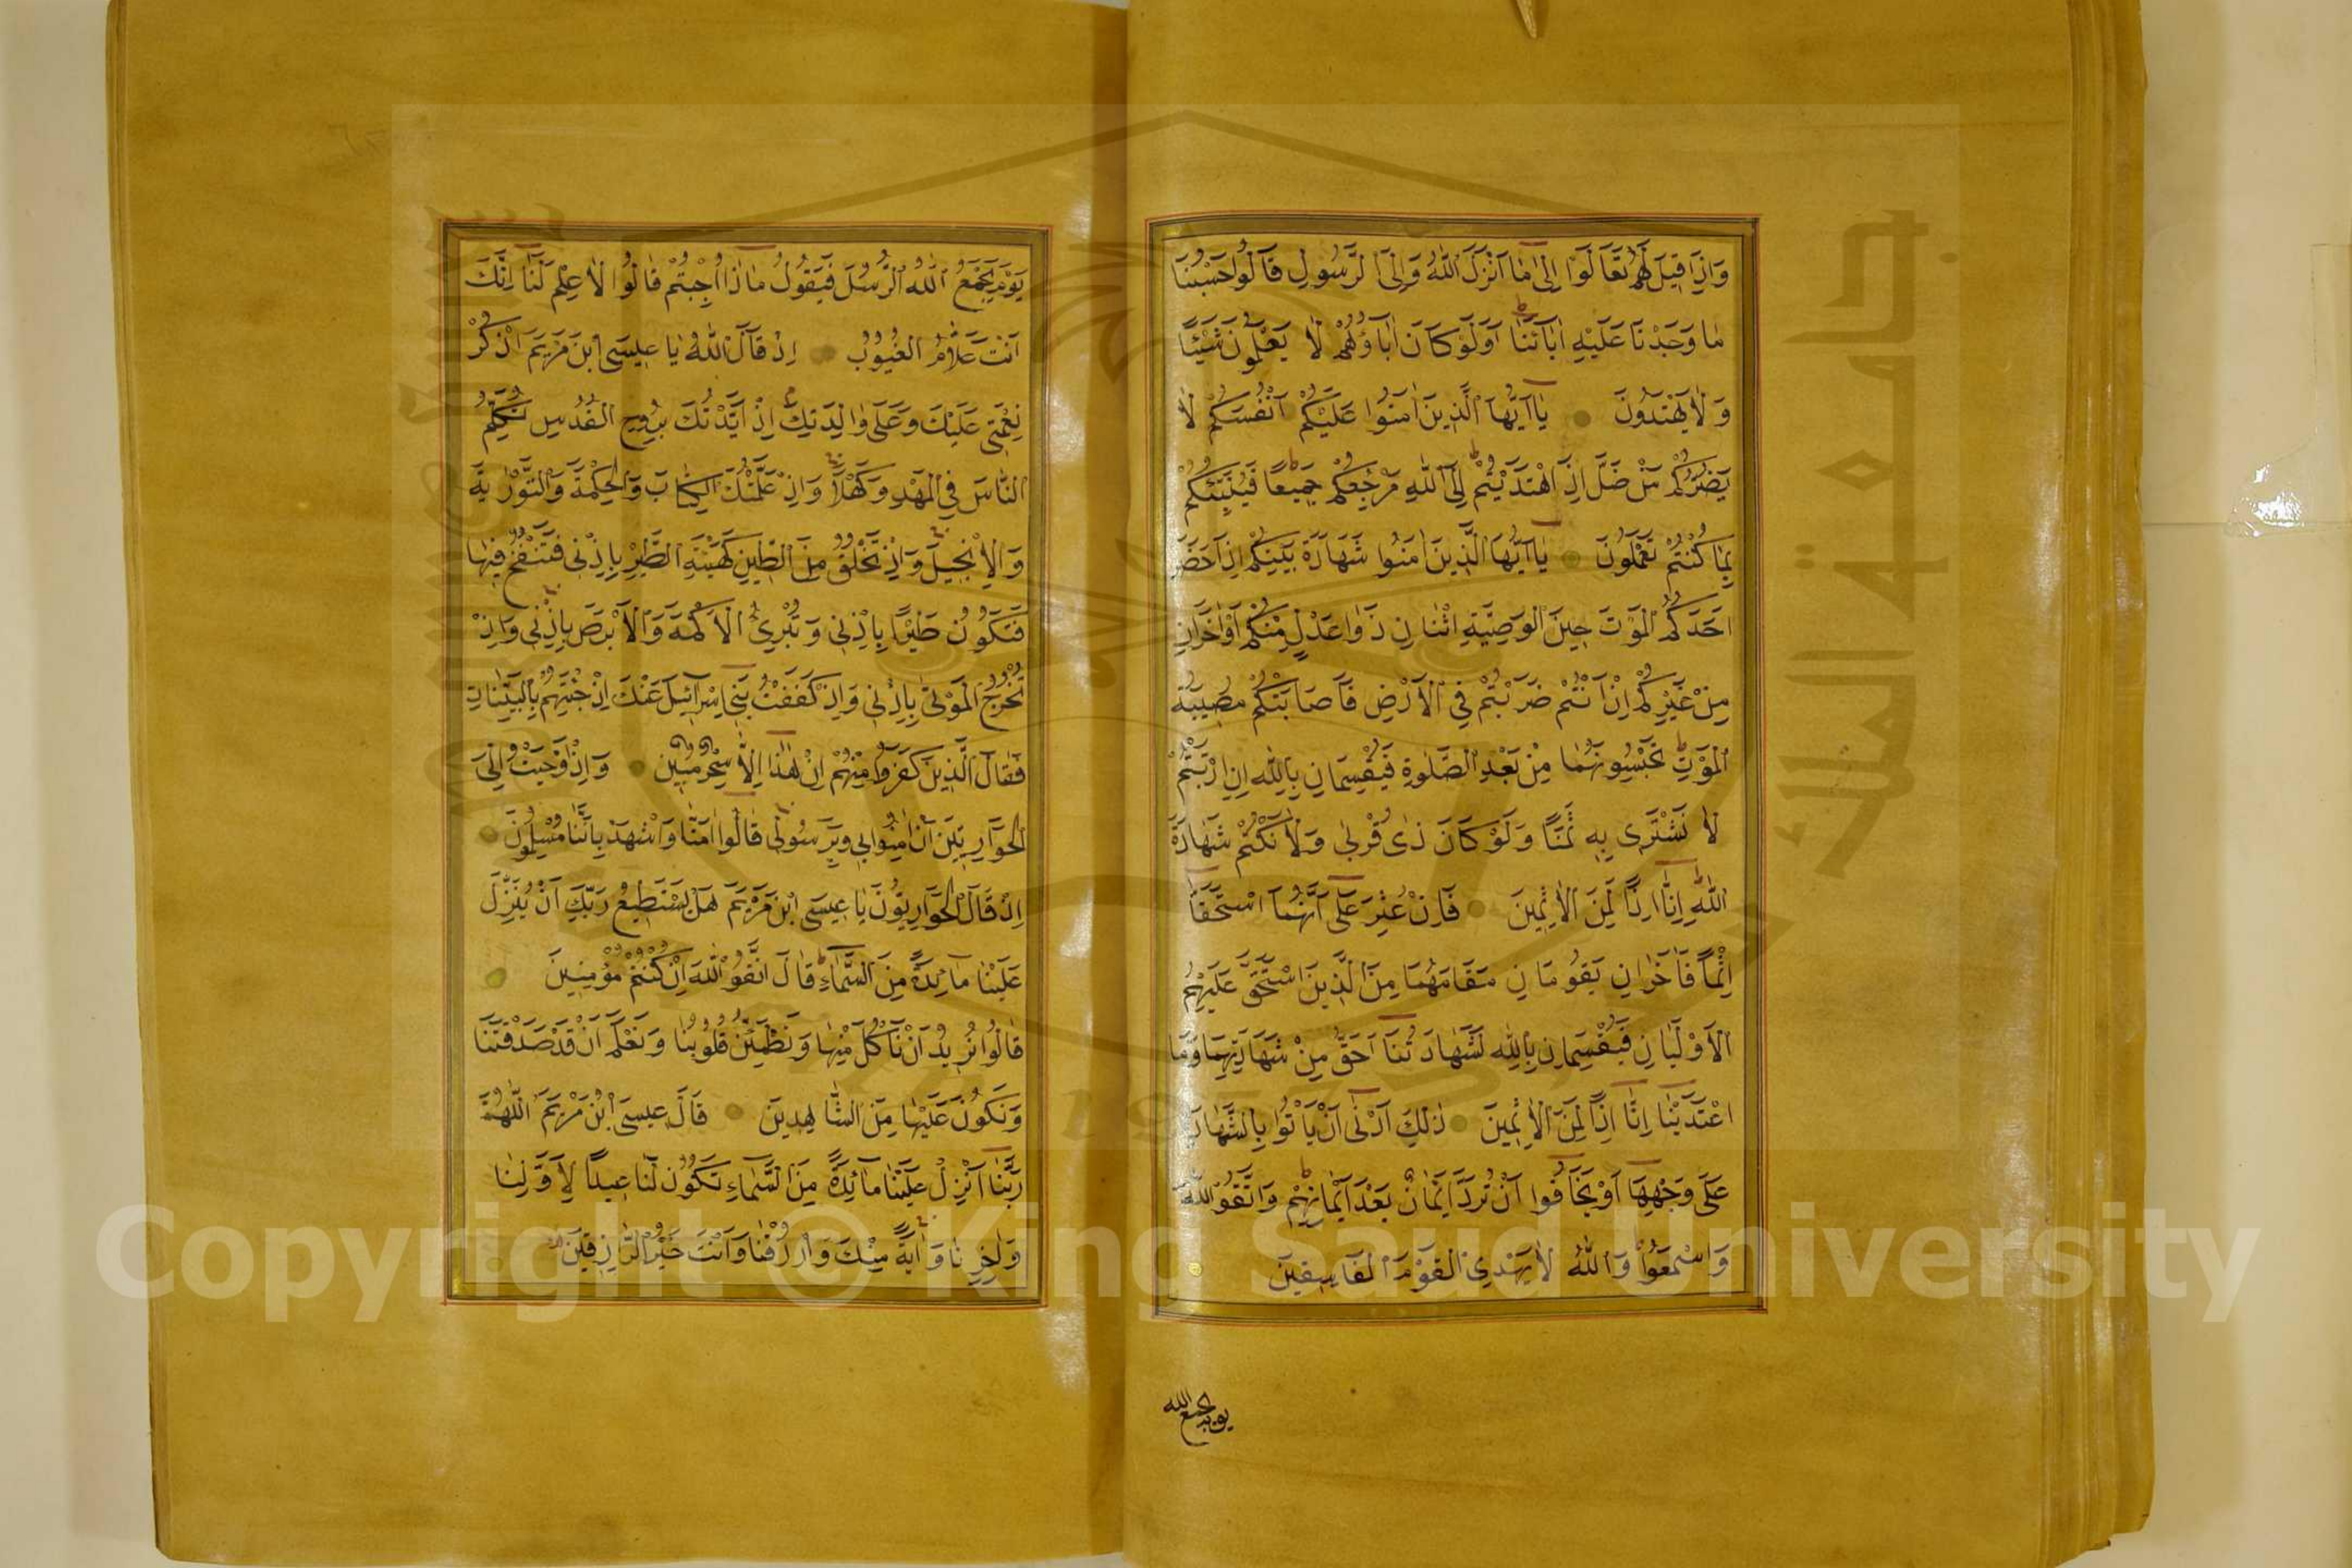 وَاِذَا قِيلَ لَهُمْ تَعَالَوْا اِلٰى مَا اَنْزَلَ اللّٰهُ وَاِلَى الرَّسُولِ قَالُوا حَسْبُنَا
مَا وَجَدْنَا عَلَيْهِ اٰبَائَنَا اَوَلَوْ كَانَ اٰبَاؤُهُمْ لَا يَعْلَمُونَ شَيْئًا
وَلَا يَهْتَدُونَ يَا اَيُّهَا الَّذِينَ اٰمَنُوا عَلَيْكُمْ اَنْفُسَكُمْ لَا
يَضُرُّكُمْ مَنْ ضَلَّ اِذَا اهْتَدَيْتُمْ اِلَى اللّٰهِ مَرْجِعُكُمْ جَمِيعًا فَيُنَبِّئُكُمْ
بِمَا كُنْتُمْ تَعْمَلُونَ يَا اَيُّهَا الَّذِينَ اٰمَنُوا شَهَادَةُ بَيْنِكُمْ اِذَا حَضَرَ
اَحَدَكُمُ الْمَوْتُ حِينَ الْوَصِيَّةِ اثْنَانِ ذَوَا عَدْلٍ مِنْكُمْ اَوْ اٰخَرَانِ
مِنْ غَيْرِكُمْ اِنْ اَنْتُمْ ضَرَبْتُمْ فِي الْاَرْضِ فَاَصَابَتْكُمْ مُصِيبَةُ
الْمَوْتِ تَحْبِسُونَهُمَا مِنْ بَعْدِ الصَّلٰوةِ فَيُقْسِمَانِ بِاللّٰهِ اِنِ ارْتَبْتُمْ
لَا نَشْتَرِى بِهِ ثَمَنًا وَلَوْ كَانَ ذَا قُرْبٰى وَلَا نَكْتُمُ شَهَادَةَ
اللّٰهِ اِنَّا اِذًا لَمِنَ الْاٰثِمِينَ فَاِنْ عُثِرَ عَلٰى اَنَّهُمَا اسْتَحَقَّا
اِثْمًا فَاٰخَرَانِ يَقُومَانِ مَقَامَهُمَا مِنَ الَّذِينَ اسْتَحَقَّ عَلَيْهِمُ
الْاَوْلَيَانِ فَيُقْسِمَانِ بِاللّٰهِ لَشَهَادَتُنَا اَحَقُّ مِنْ شَهَادَتِهِمَا وَمَا
اعْتَدَيْنَا اِنَّا اِذًا لَمِنَ الْاٰثِمِينَ ذٰلِكَ اَدْنٰى اَنْ يَأْتُوا بِالشَّهَادَةِ
عَلٰى وَجْهِهَا اَوْ يَخَافُوا اَنْ تُرَدَّ اَيْمَانٌ بَعْدَ اَيْمَانِهِمْ وَاتَّقُوا اللّٰهَ
وَاسْمَعُوا وَاللّٰهُ لَا يَهْدِى الْقَوْمَ الْفَاسِقِينَ
يوم يجمع الله
يَوْمَ يَجْمَعُ اللّٰهُ الرُّسُلَ فَيَقُولُ مَاذَا اُجِبْتُمْ قَالُوا لَا عِلْمَ لَنَا اِنَّكَ
اَنْتَ عَلَّامُ الْغُيُوبِ اِذْ قَالَ اللّٰهُ يَا عِيسَى ابْنَ مَرْيَمَ اذْكُرْ
نِعْمَتِى عَلَيْكَ وَعَلٰى وَالِدَتِكَ اِذْ اَيَّدْتُكَ بِرُوحِ الْقُدُسِ تُكَلِّمُ
النَّاسَ فِي الْمَهْدِ وَكَهْلًا وَاِذْ عَلَّمْتُكَ الْكِتَابَ وَالْحِكْمَةَ وَالتَّوْرٰيةَ
وَالْاِنْجِيلَ وَاِذْ تَخْلُقُ مِنَ الطِّينِ كَهَيْئَةِ الطَّيْرِ بِاِذْنِى فَتَنْفُخُ فِيهَا
فَتَكُونُ طَيْرًا بِاِذْنِى وَتُبْرِئُ الْاَكْمَهَ وَالْاَبْرَصَ بِاِذْنِى وَاِذْ
تُخْرِجُ الْمَوْتٰى بِاِذْنِى وَاِذْ كَفَفْتُ بَنِى اِسْرَائِلَ عَنْكَ اِذْ جِئْتَهُمْ بِالْبَيِّنَاتِ
فَقَالَ الَّذِينَ كَفَرُوا مِنْهُمْ اِنْ هٰذَا اِلَّا سِحْرٌ مُبِينٌ وَاِذْ اَوْحَيْتُ اِلَى
الْحَوَارِيِّينَ اَنْ اٰمِنُوا بِى وَبِرَسُولِى قَالُوا اٰمَنَّا وَاشْهَدْ بِاَنَّنَا مُسْلِمُونَ
اِذْ قَالَ الْحَوَارِيُّونَ يَا عِيسَى ابْنَ مَرْيَمَ هَلْ يَسْتَطِيعُ رَبُّكَ اَنْ يُنَزِّلَ
عَلَيْنَا مَائِدَةً مِنَ السَّمَاءِ قَالَ اتَّقُوا اللّٰهَ اِنْ كُنْتُمْ مُؤْمِنِينَ
قَالُوا نُرِيدُ اَنْ نَأْكُلَ مِنْهَا وَتَطْمَئِنَّ قُلُوبُنَا وَنَعْلَمَ اَنْ قَدْ صَدَقْتَنَا
وَنَكُونَ عَلَيْهَا مِنَ الشَّاهِدِينَ قَالَ عِيسَى ابْنُ مَرْيَمَ اللّٰهُمَّ
رَبَّنَا اَنْزِلْ عَلَيْنَا مَائِدَةً مِنَ السَّمَاءِ تَكُونُ لَنَا عِيدًا لِاَوَّلِنَا
وَاٰخِرِنَا وَاٰيَةً مِنْكَ وَارْزُقْنَا وَاَنْتَ خَيْرُ الرَّازِقِينَ
Copyright © King Saud University